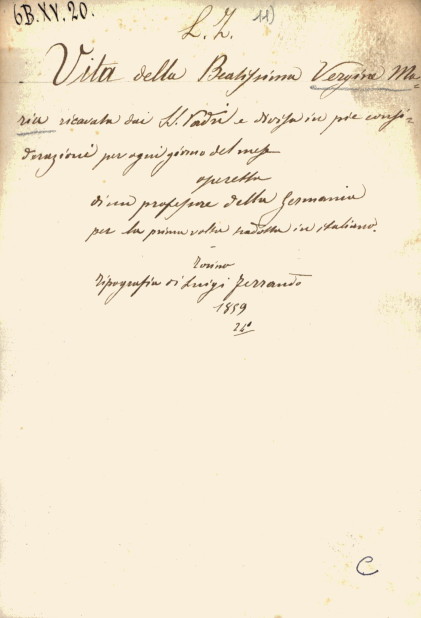 6B.XV.20.
L. Z. 11)
Vita della Beatissima Vergine Ma-
ria ricavata dai SS. Padri e divisa in pie consi-
derazioni per ogni giorno del mese
operetta
di un professore della Germania
per la prima volta tradotta in italiano.
-
Torino
Tipografia di Luigi Ferrando
1859
24°
C